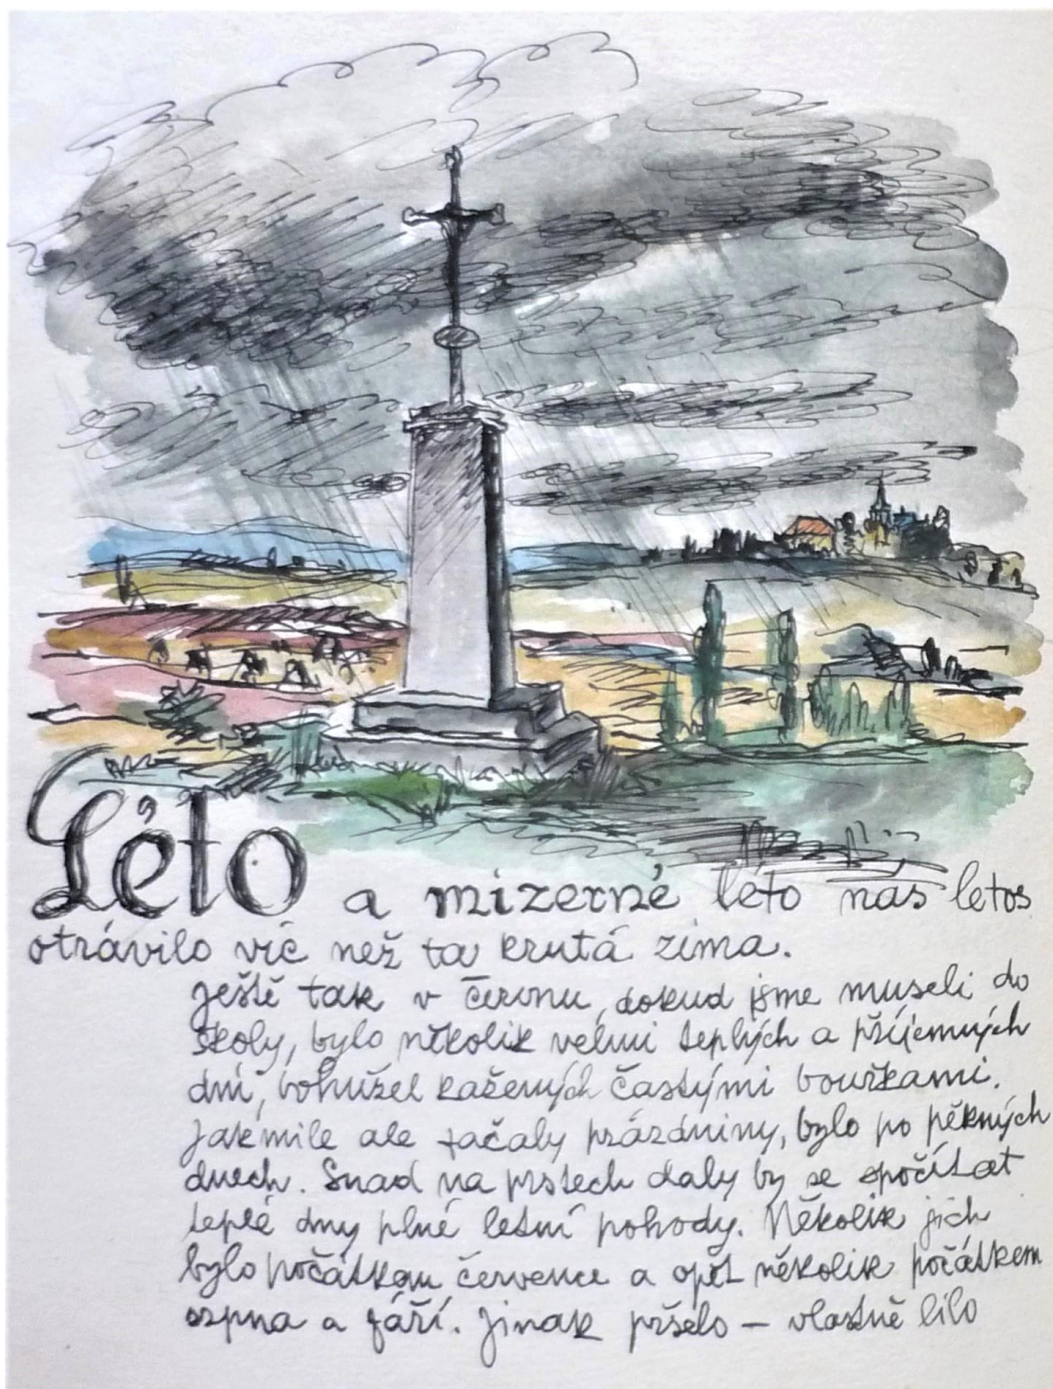 Léto a mizerné léto nás letos
otrávilo víc než ta krutá zima.
Ještě tak v červnu, dokud jsme museli do
školy, bylo několik velmi teplých a příjemných
dní, bohužel kažených častými bouřkami.
Jakmile ale začaly prázdniny, bylo po pěkných
dnech. Snad na prstech daly by se spočítat
teplé dny plné letní pohody. Několik jich
bylo počátkem července a opět několik počátkem
srpna a září. Jinak pršelo – vlastně lilo